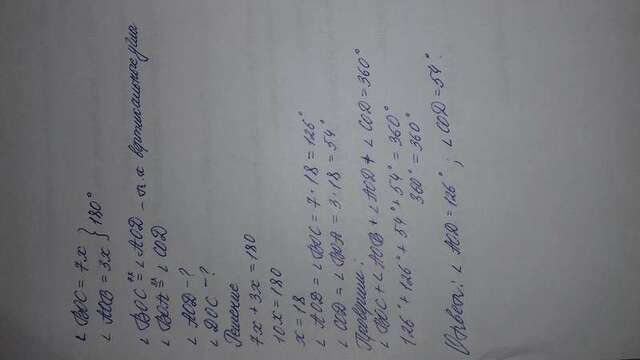 ∠ BOC = 7x
∠ AOB = 3x } 180°
∠ BOC = ∠ AOD - т.к вертикальные углы
∠ BOA = ∠ COD
∠ AOD - ?
∠ DOC - ?
Решение
7x + 3x = 180
10x = 180
x = 18
∠ AOD = ∠ BOC = 7 · 18 = 126°
∠ COD = ∠ BOA = 3 · 18 = 54°
Проверим:
∠ BOC + ∠ AOB + ∠ AOD + ∠ COD = 360°
126° + 126° + 54° + 54° = 360°
360° = 360°
Ответ: ∠ AOD = 126° ; ∠ COD = 54°.